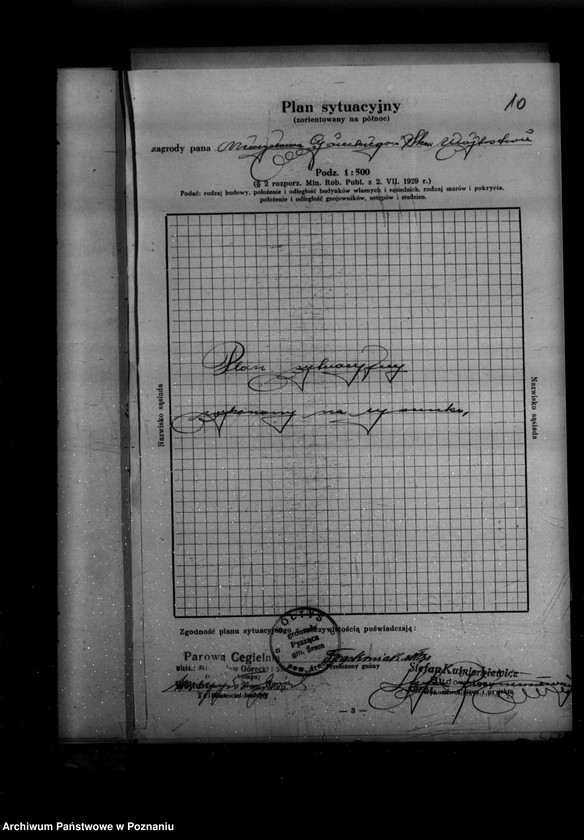 10
Plan sytuacyjny
(zorientowany na północ)
zagrody pana
Podz. 1:500
(§ 2 rozporz. Min. Rob. Publ. z 2. VII. 1929 r.)
Podać: rodzaj budowy, położenie i odległość budynków własnych i sąsiednich, rodzaj murów i pokrycia,
położenie i odległość gnojowników, ustępów i studzien.
Nazwisko sąsiada
Plan sytuacyjny
wykonany na rysunku,
Nazwisko sąsiada
Zgodność planu sytuacyjnego rzeczywistością poświadczają:
SOŁTYS
gromady
Pysząca
gm. Śrem
pow. Śrem
Parowa Cegielnia
Górecki
Przełożony gminy
Stefan Kuśnierkiewicz
Budowniczy
— 3 —
Archiwum Państwowe w Poznaniu